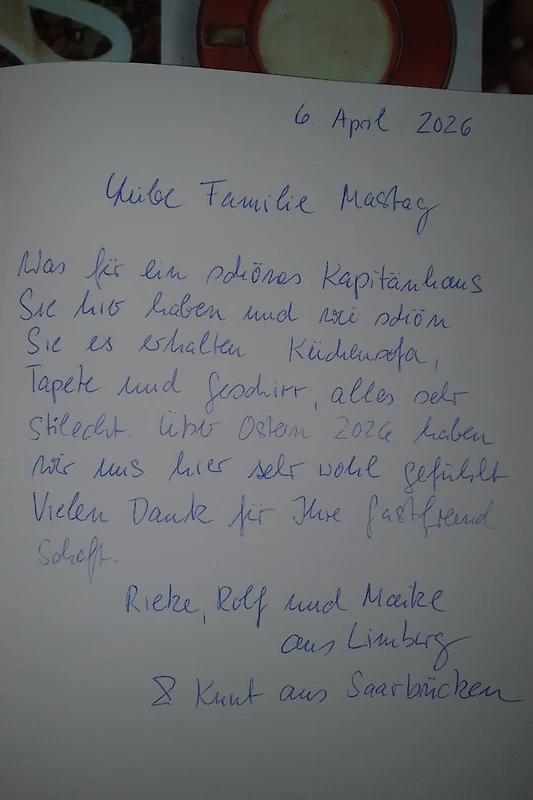 6. April 2026
Liebe Familie Mastag
Was für ein schönes Kapitänhaus
Sie hier haben und wie schön
Sie es erhalten Küchensofa,
Tapete und Geschirr, alles sehr
stilecht. Über Ostern 2026 haben
wir uns hier sehr wohl gefühlt
Vielen Dank für Ihre Gastfreund
schaft.
Rieke, Rolf und Maike
aus Limberg
& Knut aus Saarbrücken